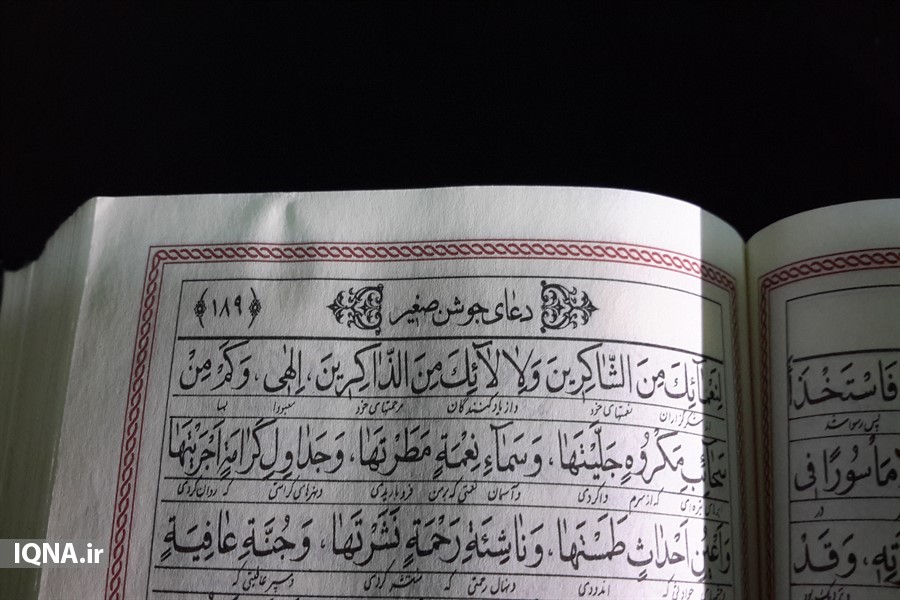 دعای جوشن صغیر
﴿۱۸۹﴾
لِنَعْمَآئِكَ مِنَ الشَّاكِرِينَ وَلِاٰلَآئِكَ مِنَ الذَّاكِرِينَ، اِلٰهِى، وَكَمْ مِنْ
شکرگزاران نعمتهای خود و از یادکنندگان مرحمتهای خود معبودا بسا
سَحَآئِبِ مَكْرُوهٍ جَلَّيْتَهٰا، وَسَمَآءِ نِعْمَةٍ مَطَرْتَهٰا، وَجَدٰاوِلِ كَرٰامَةٍ اَجْرَيْتَهٰا
که از سرم وا کردی و آسمان نعمتی که بر من فرو باریدی و نهرهای کرامتی که روان کردی
وَاَعْيُنِ اَحْدٰاثٍ طَمَسْتَهٰا، وَنٰاشِئَةِ رَحْمَةٍ نَشَرْتَهٰا، وَجُنَّةِ عٰافِيَةٍ
حوادثی که و نهال رحمتی که منتشر کردی و سپر عافیتی که
فَاسْتَخْذَأَ
مَأْسُورًا فى
در
وَقَدْ
IQNA.ir